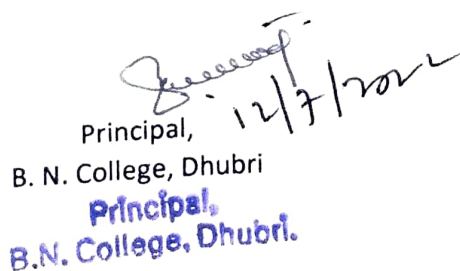 12/7/2022
Principal,
B. N. College, Dhubri
Principal,
B.N. College, Dhubri.